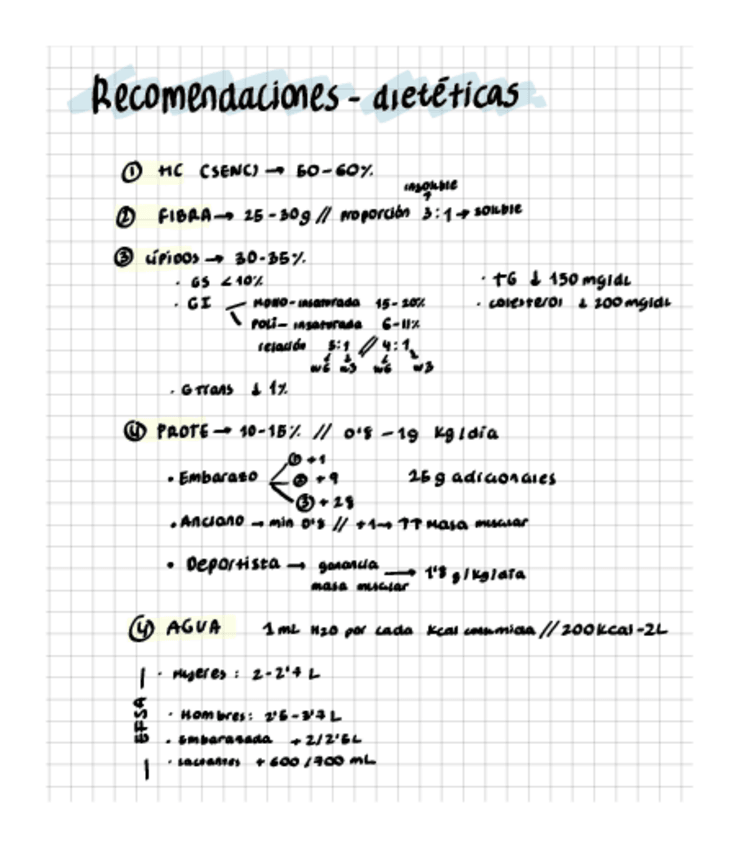 Recomendaciones - dietéticas
① HC (SENC) → 50-60%
insoluble
↑
② FIBRA → 25-30g // proporción 3:1 → soluble
③ Lípidos → 30-35%
· GS < 10%
· TG ↓ 150 mg/dL
· GI — Mono-insaturada 15-20%
· colesterol ↓ 200 mg/dL
Poli-insaturada 6-11%
relación 5:1 // 4:1
w6 w3 w6 w3
· G trans ↓ 1%
④ PROTE → 10-15% // 0'8 - 1g kg/día
① +1
· Embarazo ② +9 25 g adicionales
③ +28
· Anciano → min 0'8 // +1 → ↑↑ Masa muscular
· Deportista → ganancia → 1'8 g/kg/día
masa muscular
④ AGUA 1 mL H2O por cada Kcal consumida // 200 kcal - 2L
EFSA
· Mujeres: 2-2'7 L
· Hombres: 2'5-3'7 L
· Embarazada + 2/2'5L
· Lactantes + 600/700 mL